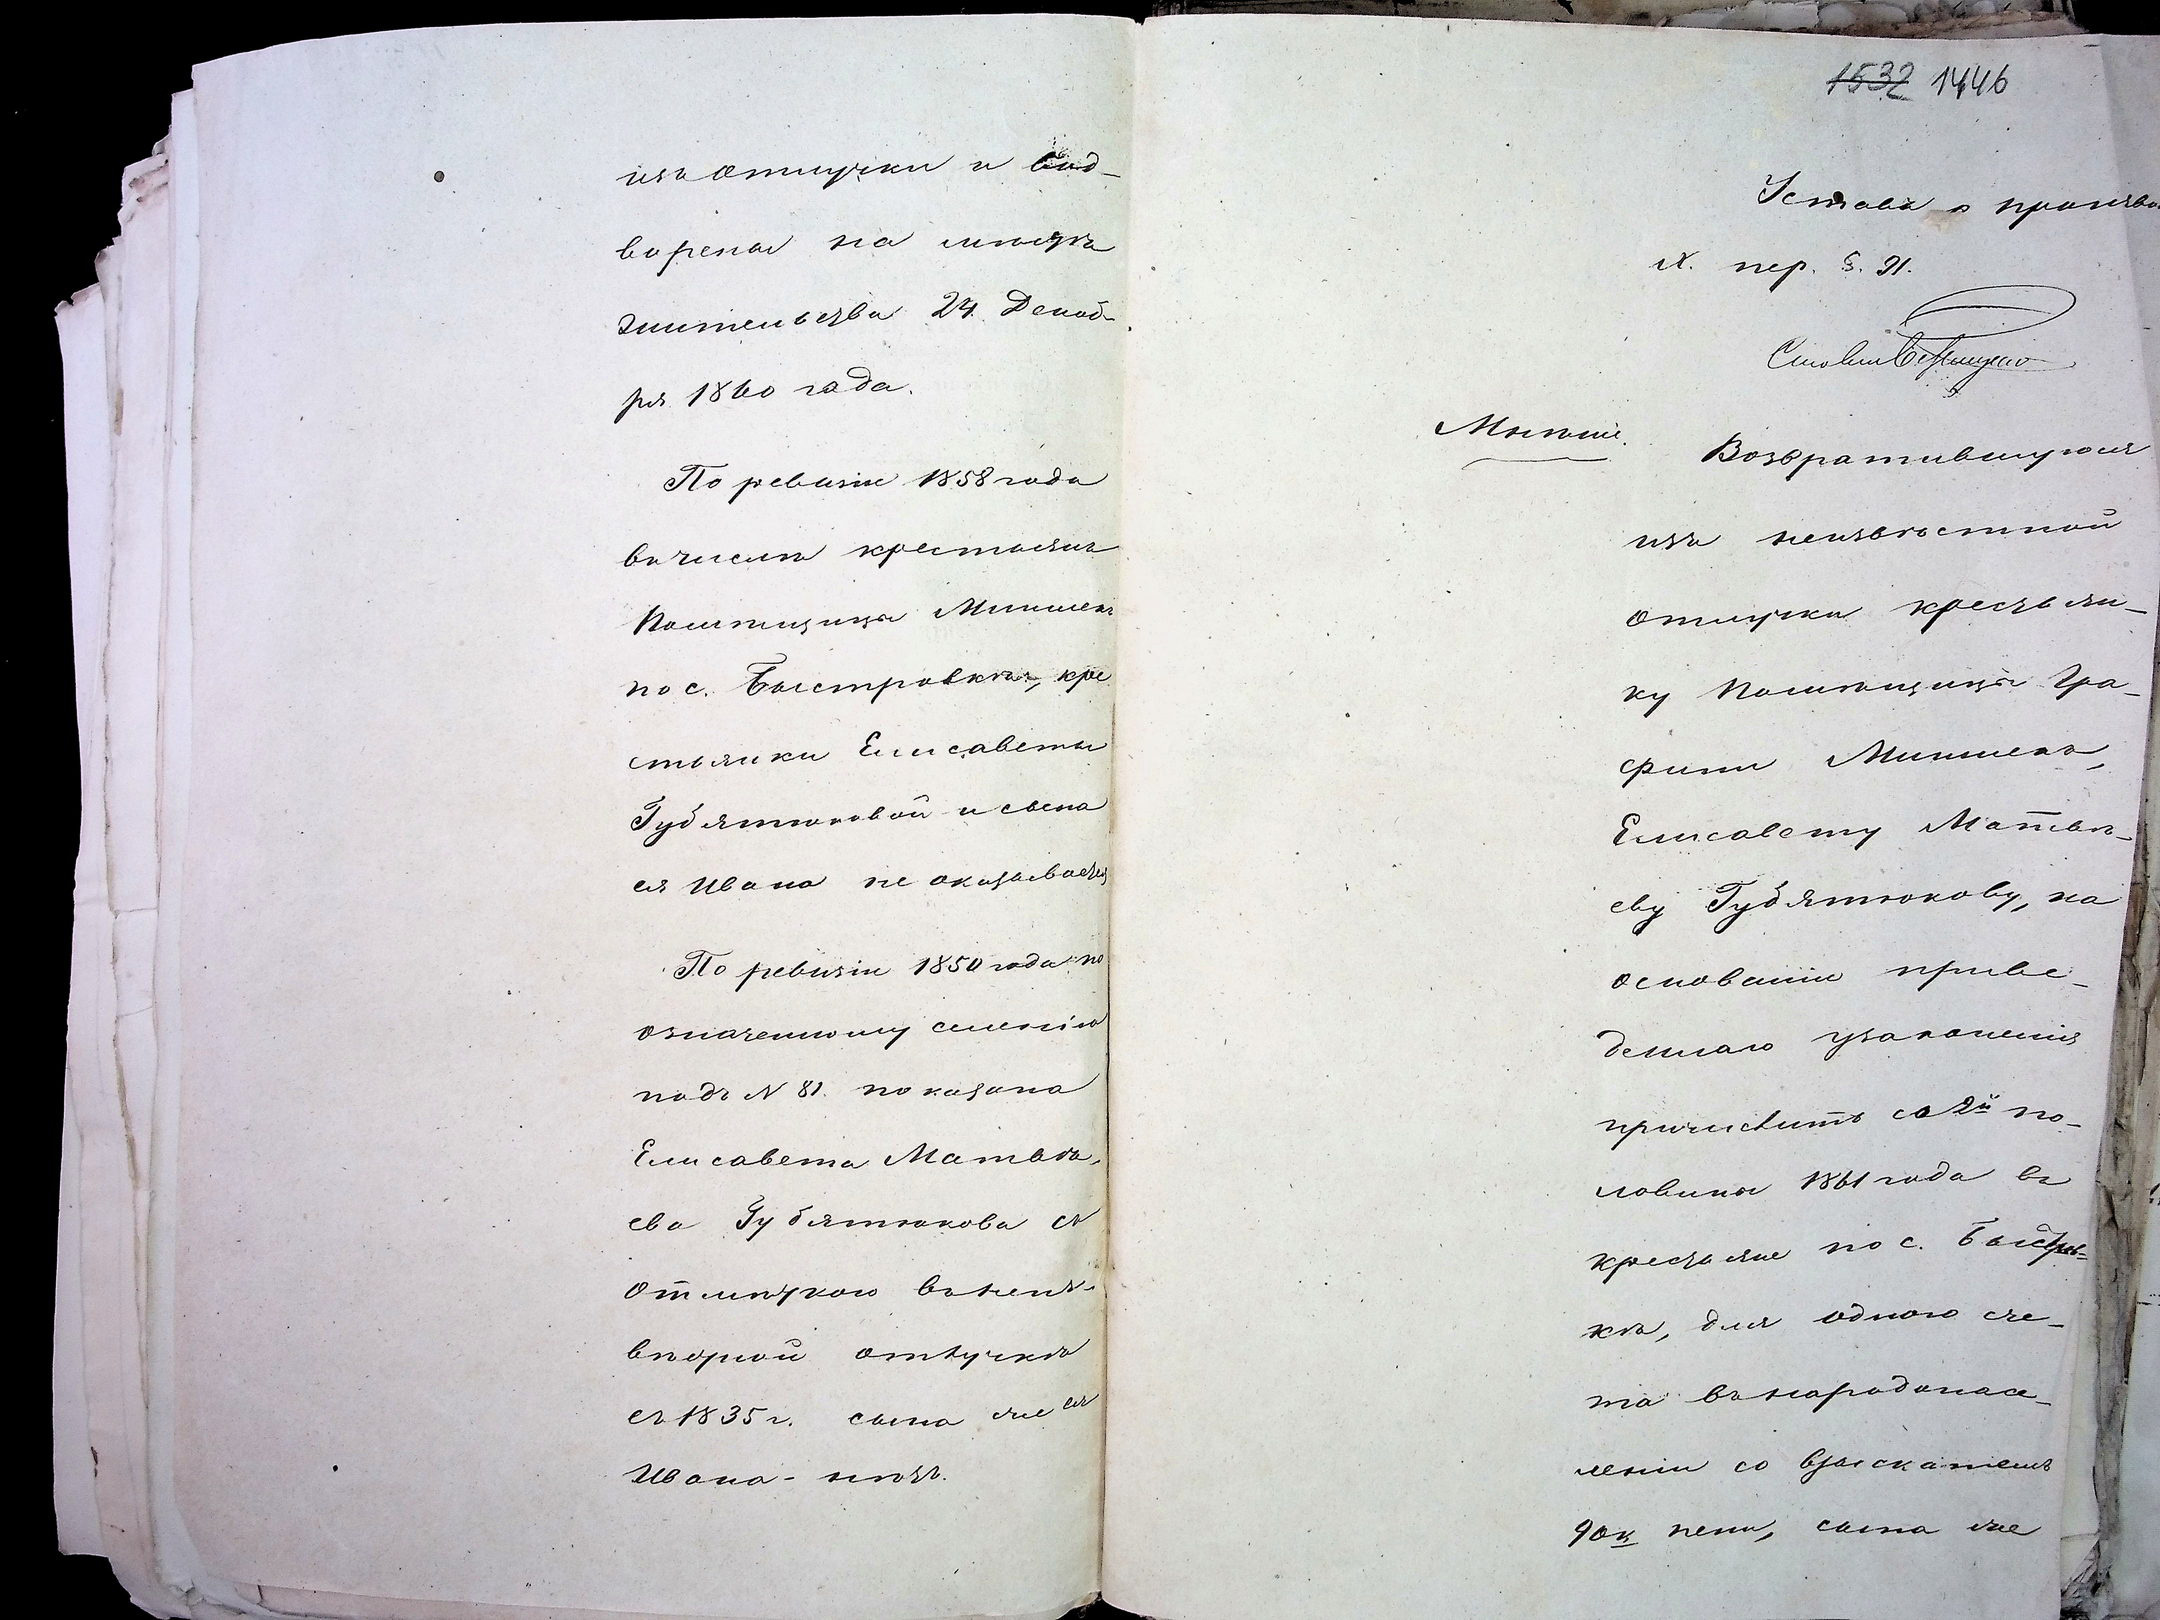 изъ отлучки и вод-
ворены на мѣстѣ
жительства 24 Декаб-
ря 1860 года.
По ревизіи 1858 года
въ числѣ крестьянъ
Помѣщицы Минихъ
по с. Быстровкѣ, кре
стьянки Елисаветы
Гублятюковой и сына
ея Ивана не оказывается
По ревизіи 1850 года по
означенному селенію
подъ N 81. показана
Елисавета Матвѣ-
ева Гублятюкова съ
отмѣткою въ неиз-
вѣстной отлучкѣ
съ 1835 г. сына же ея
Ивана - нѣтъ.
1532 1446
Уставъ о произво
X. пер. §. 91.
Мнѣніе.
Возвратившуюся
изъ неизвѣстной
отлучки крестьян-
ку Помѣщицы Гра-
фини Минихъ,
Елисавету Матвѣ-
еву Гублятюкову, на
основаніи приве-
деннаго узаконенія
причислить со 2й по-
ловины 1861 года въ
крестьяне по с. Быстров-
кѣ, для одного сче-
та въ народонасе-
леніи со взысканіемъ
90к пени, сына же